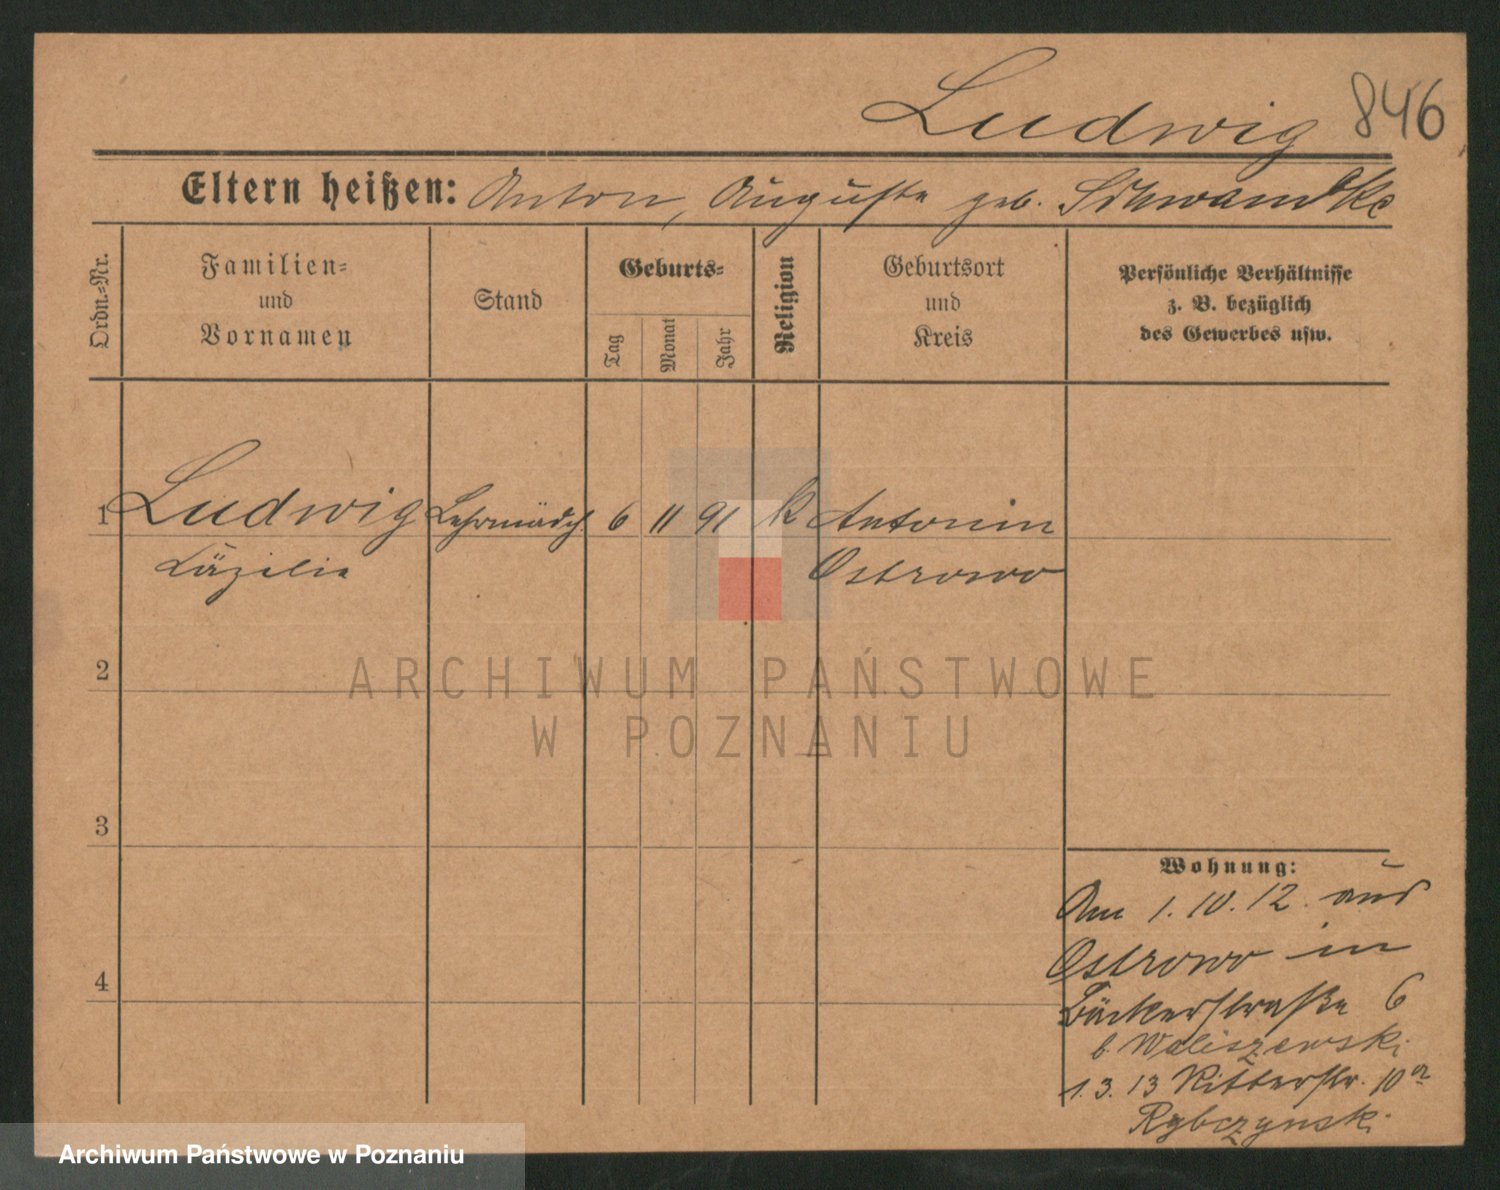 Ludwig 846
Eltern heißen: Anton, Auguste geb. Schwandke
Ordn.=Nr.
Familien=
und
Vornamen
Stand
Geburts=
Tag
Monat
Jahr
Religion
Geburtsort
und
Kreis
Persönliche Verhältnisse
z. B. bezüglich
des Gewerbes usw.
1 Ludwig Lehrmädch. 6 11 91 k Antonin
Cäzilie Ostrowo
2
ARCHIWUM PAŃSTWOWE
W POZNANIU
3
Wohnung:
Am 1.10.12 aus
Ostrowo in
4
Bäckerstraße 6
b. Waliszewski
1.3.13 Ritterstr. 10a
Rybczynski
Archiwum Państwowe w Poznaniu